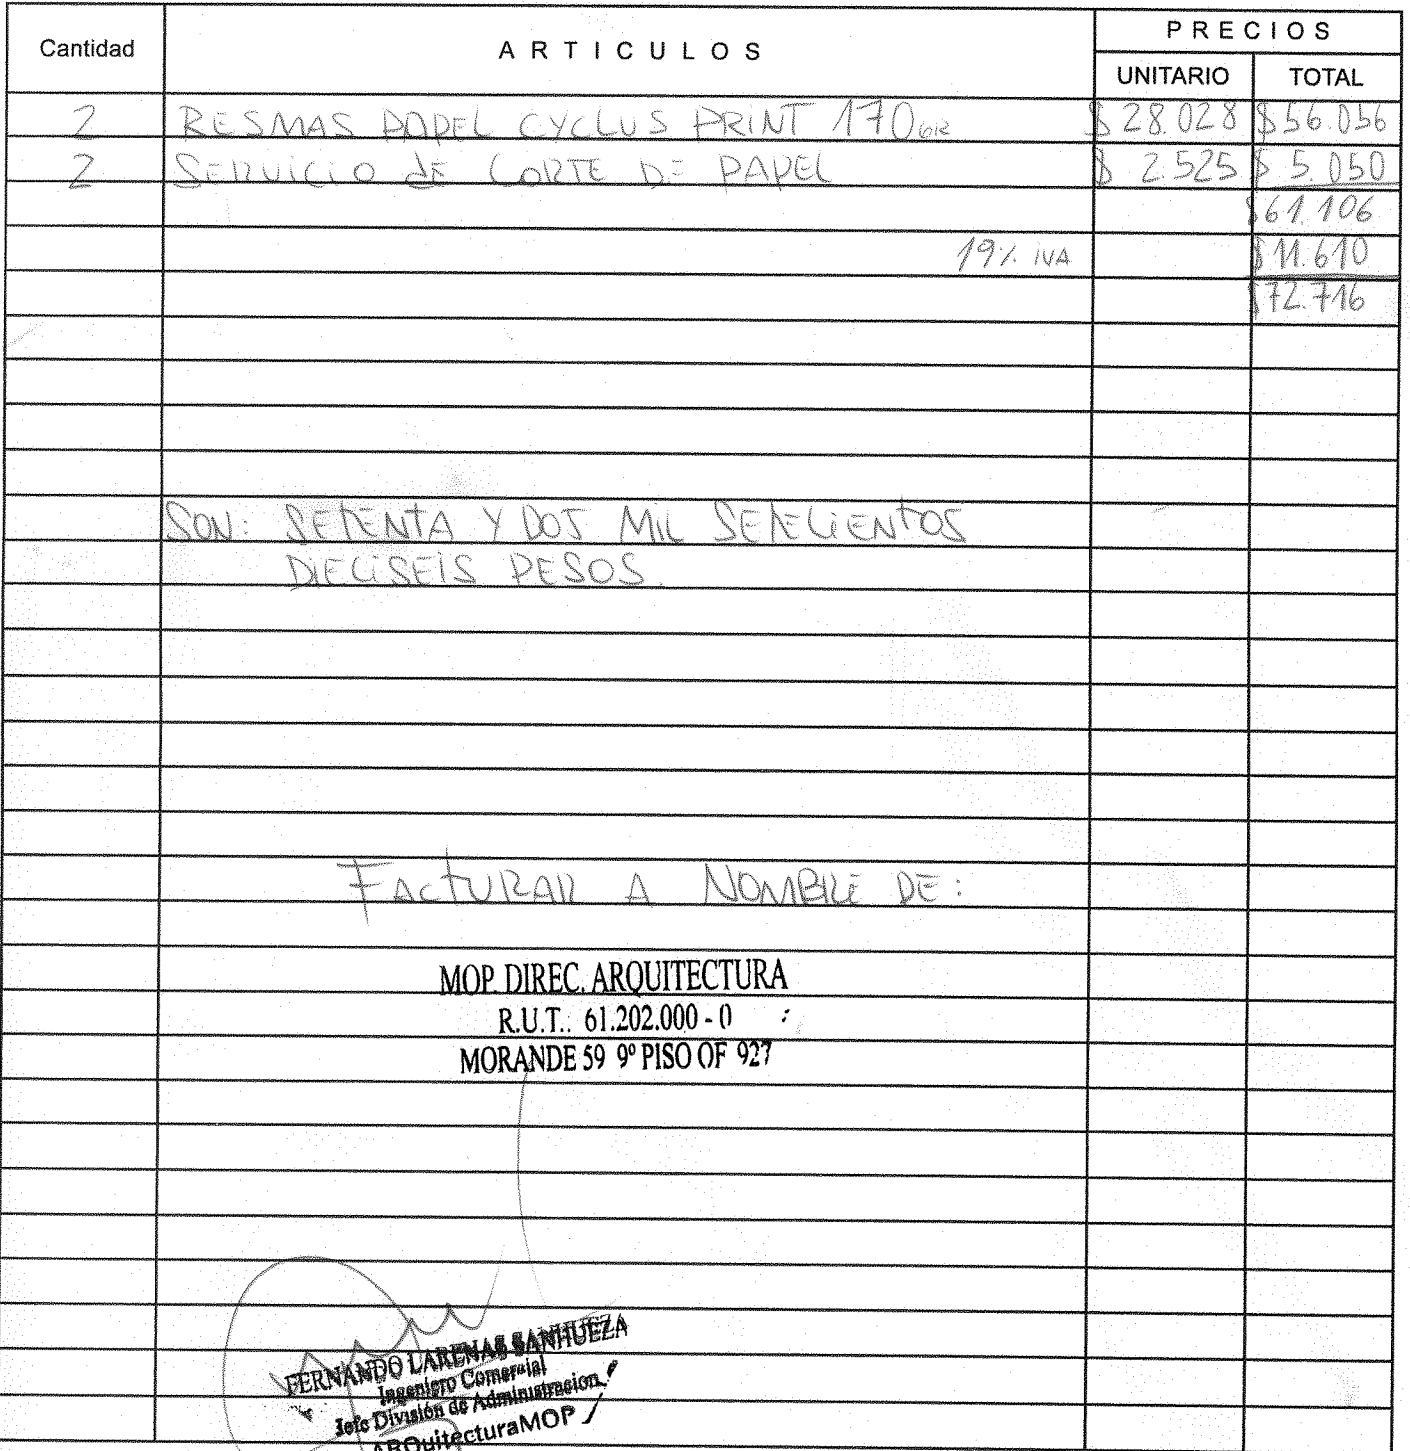 Cantidad ARTICULOS PRECIOS
UNITARIO TOTAL
2 RESMAS PAPEL CYCLUS PRINT 170 GR $28.028 $56.056
2 SERVICIO DE CORTE DE PAPEL $ 2.525 $ 5.050
$61.106
19% IVA $11.610
$72.716
SON: SETENTA Y DOS MIL SETECIENTOS
DIECISEIS PESOS.
FACTURAR A NOMBRE DE:
MOP. DIREC. ARQUITECTURA
R.U.T.: 61.202.000 - 0 :
MORANDE 59 9º PISO OF 927
FERNANDO LARENAS SANHUEZA
Ingeniero Comercial
Jefe División de Administracion
ARQuitecturaMOP